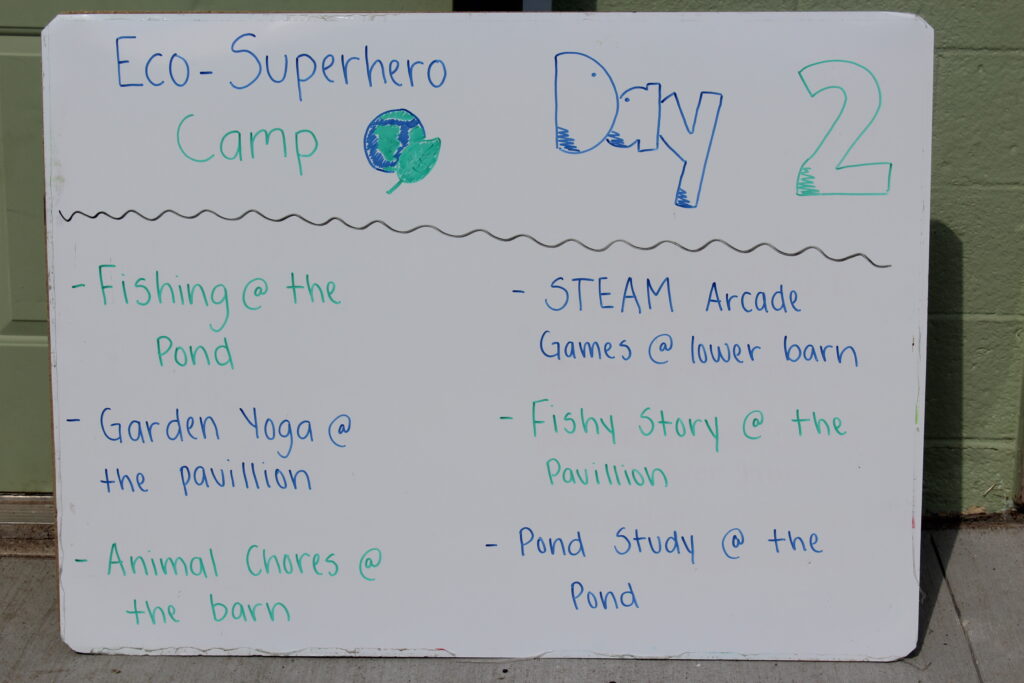 Eco-Superhero
Camp
Day 2
- Fishing @ the
Pond
- Garden Yoga @
the pavillion
- Animal Chores @
the barn
- STEAM Arcade
Games @ lower barn
- Fishy Story @ the
Pavillion
- Pond Study @ the
Pond